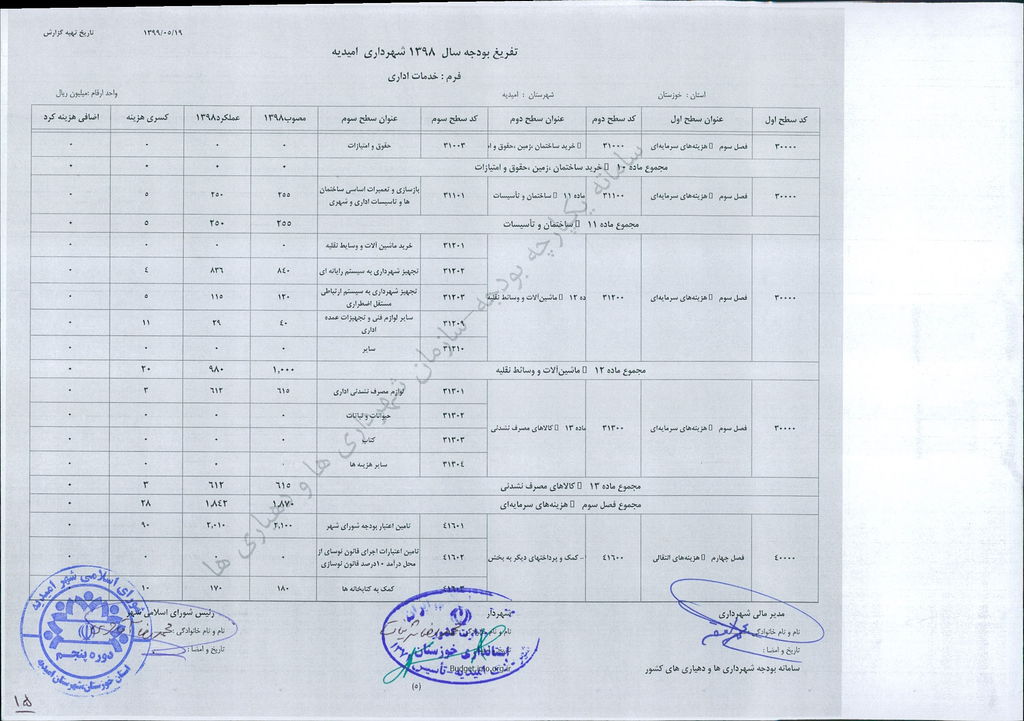 تاریخ تهیه گزارش ۱۳۹۹/۰۵/۱۹
تفریغ بودجه سال ۱۳۹۸ شهرداری امیدیه
فرم : خدمات اداری
استان : خوزستان شهرستان : امیدیه واحد ارقام :میلیون ریال
کد سطح اول عنوان سطح اول کد سطح دوم عنوان سطح دوم کد سطح سوم عنوان سطح سوم مصوب۱۳۹۸ عملکرد۱۳۹۸ کسری هزینه اضافی هزینه کرد
۳۰۰۰۰ فصل سوم هزینه‌های سرمایه‌ای ۳۱۰۰۰ خرید ساختمان ،زمین ،حقوق و ام ۳۱۰۰۳ حقوق و امتیازات ۰ ۰ ۰ ۰
مجموع ماده ۱۰ خرید ساختمان ،زمین ،حقوق و امتیازات ۰ ۰ ۰ ۰
۳۰۰۰۰ فصل سوم هزینه‌های سرمایه‌ای ۳۱۱۰۰ ماده ۱۱ ساختمان و تأسیسات ۳۱۱۰۱ بازسازی و تعمیرات اساسی ساختمان ها و تاسیسات اداری و شهری ۲۵۵ ۲۵۰ ۵ ۰
مجموع ماده ۱۱ ساختمان و تأسیسات ۲۵۵ ۲۵۰ ۵ ۰
۳۰۰۰۰ فصل سوم هزینه‌های سرمایه‌ای ۳۱۲۰۰ ده ۱۲ ماشین‌آلات و وسائط نقلیه ۳۱۲۰۱ خرید ماشین آلات و وسایط نقلیه ۰ ۰ ۰ ۰
۳۱۲۰۲ تجهیز شهرداری به سیستم رایانه ای ۸۴۰ ۸۳۶ ۴ ۰
۳۱۲۰۳ تجهیز شهرداری به سیستم ارتباطی مستقل اضطراری ۱۲۰ ۱۱۵ ۵ ۰
۳۱۲۰۹ سایر لوازم فنی و تجهیزات عمده اداری ۴۰ ۲۹ ۱۱ ۰
۳۱۲۱۰ سایر ۰ ۰ ۰ ۰
مجموع ماده ۱۲ ماشین‌آلات و وسائط نقلیه ۱,۰۰۰ ۹۸۰ ۲۰ ۰
۳۰۰۰۰ فصل سوم هزینه‌های سرمایه‌ای ۳۱۳۰۰ ماده ۱۳ کالاهای مصرف نشدنی ۳۱۳۰۱ لوازم مصرف نشدنی اداری ۶۱۵ ۶۱۲ ۳ ۰
۳۱۳۰۲ حیوانات و نباتات ۰ ۰ ۰ ۰
۳۱۳۰۳ کتاب ۰ ۰ ۰ ۰
۳۱۳۰۴ سایر هزینه ها ۰ ۰ ۰ ۰
مجموع ماده ۱۳ کالاهای مصرف نشدنی ۶۱۵ ۶۱۲ ۳ ۰
مجموع فصل سوم هزینه‌های سرمایه‌ای ۱,۸۷۰ ۱,۸۴۲ ۲۸ ۰
۴۰۰۰۰ فصل چهارم هزینه‌های انتقالی ۴۱۶۰۰ - کمک و پرداختهای دیگر به بخش ۴۱۶۰۱ تامین اعتبار بودجه شورای شهر ۲,۱۰۰ ۲,۰۱۰ ۹۰ ۰
۴۱۶۰۲ تامین اعتبارات اجرای قانون نوسای از محل درآمد ۱۰درصد قانون نوسازی ۰ ۰ ۰ ۰
۴۱۶۰۳ کمک به کتابخانه ها ۱۸۰ ۱۷۰ ۱۰ ۰
سامانه یکپارچه بودجه-سازمان شهرداری ها و دهیاری ها
مدیر مالی شهرداری شهردار رئیس شورای اسلامی شهر
نام و نام خانوادگی : نام و نام خانوادگی : نام و نام خانوادگی :
تاریخ و امضا : تاریخ و امضا : تاریخ و امضا :
سامانه بودجه شهرداری ها و دهیاری های کشور Budget.imo.org.ir
(۵)
شورای اسلامی شهر امیدیه
دوره پنجم
استان خوزستان شهرستان امیدیه
استانداری خوزستان
۱۵